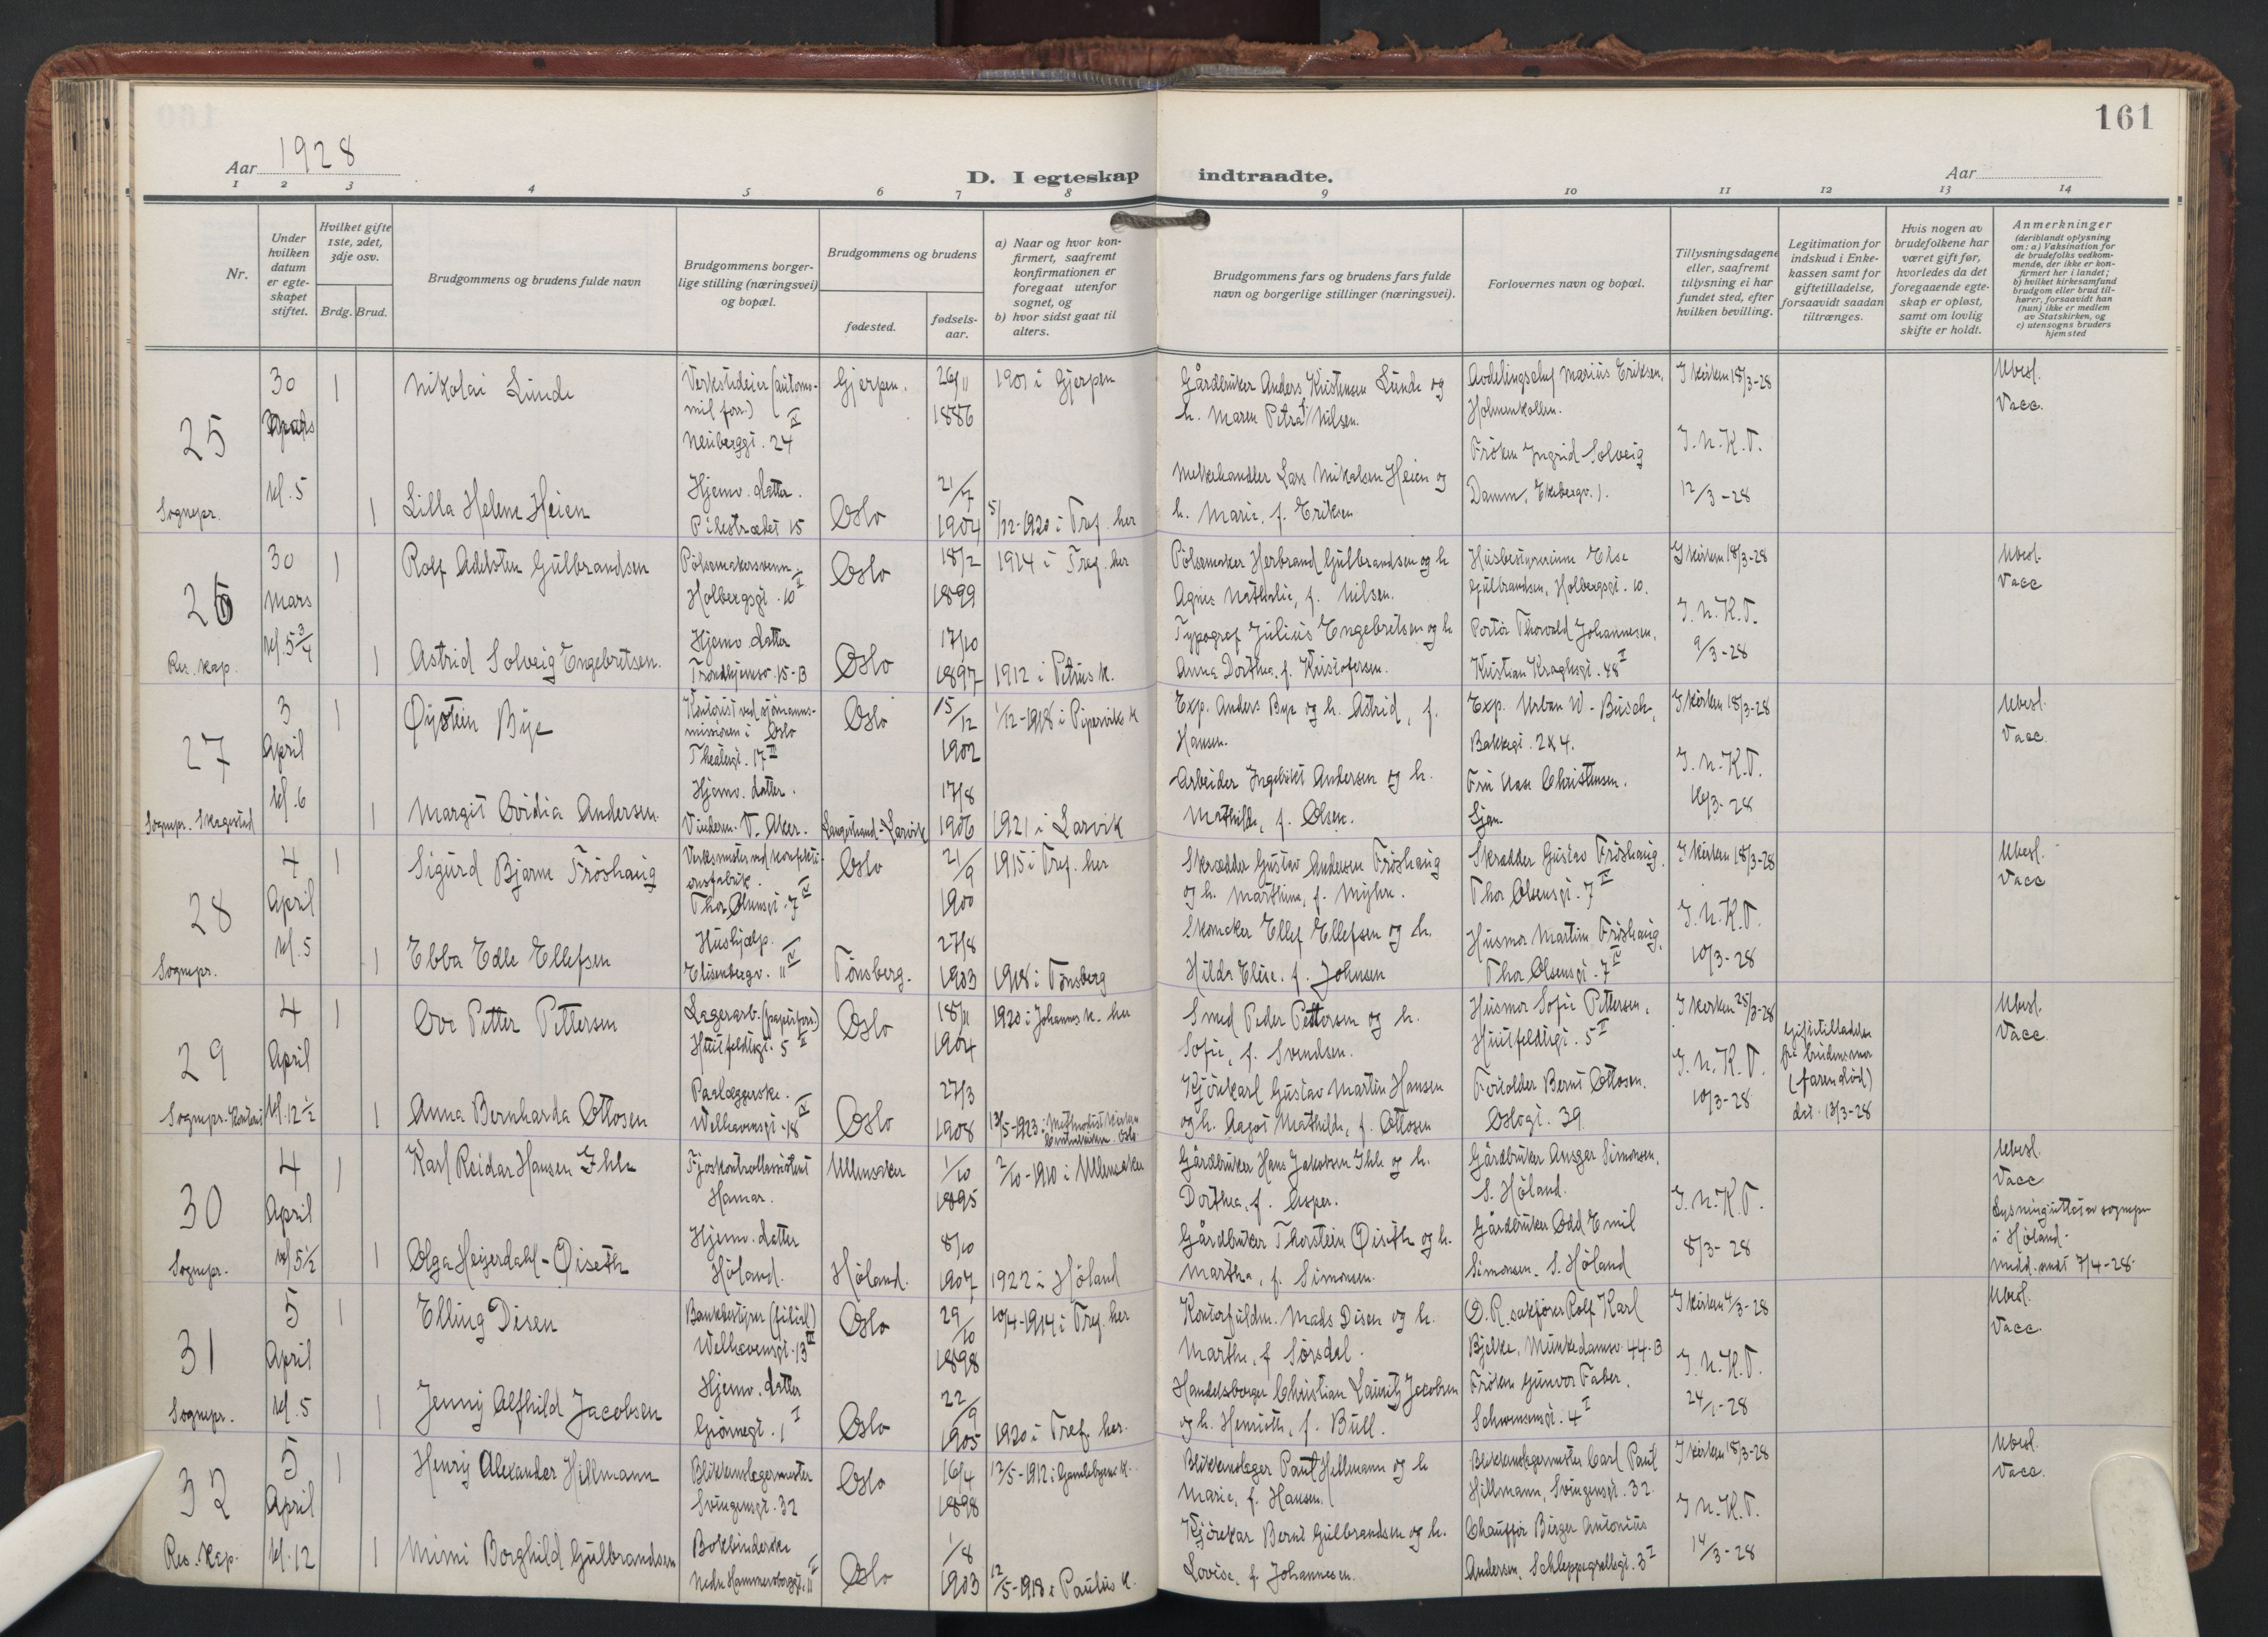 161
Aar 1928
D. I egteskap indtraadte.
Aar
1 2 3 4 5 6 7 8 9 10 11 12 13 14
Nr.
Under hvilken datum er egteskapet stiftet.
Hvilket gifte 1ste, 2det, 3dje osv.
Brdg. Brud.
Brudgommens og brudens fulde navn
Brudgommens borgerlige stilling (næringsvei) og bopæl.
Brudgommens og brudens
fødested.
fødselsaar.
a) Naar og hvor konfirmert, saafremt konfirmationen er foregaat utenfor sognet, og
b) hvor sidst gaat til alters.
Brudgommens fars og brudens fars fulde navn og borgerlige stillinger (næringsvei).
Forlovernes navn og bopæl.
Tillysningsdagene eller, saafremt tillysning ei har fundet sted, efter hvilken bevilling.
Legitimation for indskud i Enkekassen samt for giftetilladelse, forsaavidt saadan tiltrænges.
Hvis nogen av brudefolkene har været gift før, hvorledes da det foregaaende egteskap er opløst, samt om lovlig skifte er holdt.
Anmerkninger
(deriblandt oplysning om: a) Vaksination for de brudefolks vedkommende, der ikke er konfirmert her i landet;
b) hvilket kirkesamfund brudgom eller brud tilhører, forsaavidt han (hun) ikke er medlem av Statskirken, og
c) utensogns bruders hjemsted
25
Sognepr.
30 Mars kl. 5
1
Nikolai Lunde
Verkstedeier (automobil forr.)
Neubergsgt. 24 IV
Gjerpen.
26/11 1886
1901 i Gjerpen
Gårdbruker Anders Kristensen Lunde og
h. Maren Petra f. Nilsen.
Avdelingschef Marius Eriksen,
Holmenkollen.
I kirken 18/3-28
Ubesl.
Vacc.
1
Lilla Helene Heien
Hjemv. datter.
Pilestrædet 15
Oslo
21/7 1904
5/12-1920 i Tref. her
Melkehandler Lars Nikolsen Heien og
h. Marie, f. Eriksen
Frøken Ingrid Solveig
Damm, Ekebergv. 1.
I.N.K.T.
12/3-28
26
Res. kap.
30 Mars kl. 5 3/4
1
Rolf Adelsten Gulbrandsen
Pølsemakersvenn
Holbergsgt. 10 II
Oslo
18/2 1899
1914 i Tref. her
Pølsemaker Herbrand Gulbrandsen og h
Agnes Nathalie, f. Nilsen.
Husbestyrerinne Else
Gulbrandsen, Holbergsgt. 10.
I kirken 18/3-28
Ubesl.
Vacc
1
Astrid Solveig Engebretsen.
Hjemv. datter
Trondhjemsv. 15-B
Oslo
17/10 1897
1912 i Petrus k.
Typograf Julius Engebretsen og h
Anna Dorthea, f. Kristofersen.
Portør Thorvald Johannesen,
Kristian Kraghsgt. 48 I
I.N.K.T.
9/3-28
27
Sognepr. Skagestad
3 April kl. 6
1
Øystein Bye
Kontorist ved sjømannsmissionen i Oslo
Theatergt. 17 III
Oslo
15/12 1902
1/12-1918 i Pipervik k
Exp. Anders Bye og h. Astrid, f.
Hansen.
Exp. Urban W. Busch,
Bakkegt. 24.
I kirken 18/3-28
Ubesl.
Vacc.
1
Margit Ovidia Andersen.
Hjemv. datter.
Vinderen. V. Aker.
Langestrand-Larvik
17/8 1906
1921 i Larvik
Arbeider Ingebrikt Andersen og h.
Mathilde, f. Olsen.
Fru Aase Christensen.
Ljan.
I.N.K.T.
16/3-28
28
Sognepr.
4 April kl. 5
1
Sigurd Bjarne Frøshaug
Verksmester ved konfektionsfabrik.
Thor Olsensgt. 7 IV
Oslo
21/9 1900
1915 i Tref. her
Skrædder Gustav Andersen Frøshaug
og h. Marthine, f. Myhre.
Skrædder Gustav Frøshaug.
Thor Olsensgt. 7 IV
I kirken 18/3-28
Ubesl.
Vacc
1
Ebba Edle Ellefsen
Hushjælp.
Elisenbergv. 11 IV
Tønsberg.
27/8 1903
1918 i Tønsberg
Skomaker Ellef Ellefsen og h.
Hilda Elise. f. Johnsen
Husmor Martine Frøshaug,
Thor Olsensgt. 7 IV
I.N.K.T.
10/3-28
29
Sognepr. Kontoret
4 April kl. 12 1/2
1
Ove Petter Pettersen
Lagerarb. (papirforr.)
Huitfeldtsgt. 5 II
Oslo
18/11 1904
1920 i Johannes k. her
Smed Peder Pettersen og h.
Sofie, f. Svendsen.
Husmor Sofie Pettersen,
Huitfeldtsgt. 5 II
I kirken 25/3-28
Giftetilladelse fra brudens mor (faren død) dat. 13/3-28
Ubesl.
Vacc
1
Anna Bernharda Ottosen
Paalæggerske.
Welhavensgt. 18 IV
Oslo
27/3 1908
13/5-1923 i Methodistkirken Oslo
Kjørekarl Gustav Martin Hansen
og h. Aagot Mathilde, f. Ottosen
Forvalter Bernt Ottosen.
Oslogt. 39.
I.N.K.T.
10/3-28
30
Sognepr.
4 April kl 5 1/2
1
Karl Reidar Hansen Ihle
Fjøskontrollassistent
Hamar.
Ullensaker
1/10 1895
2/10-1910 i Ullensaker
Gårdbruker Hans Jakobsen Ihle og h.
Dorthea, f. Asper.
Gårdbruker Ansgar Simonsen,
S. Høland.
Ubesl.
Vacc
Lysning utført av sognepr
i Høland.
medd. sendt 7/4-28.
1
Olga Heyerdahl-Øiseth
Hjemv. datter
Høland.
Høland.
8/10 1907
1922 i Høland
Gårdbruker Thorstein Øiseth og h.
Martha, f. Simonsen.
Gårdbruker Odd Emil
Simonsen. S. Høland
I.N.K.T.
8/3-28
31
Sognepr.
5 April kl. 5
1
Elling Disen
Bankbestyrer (filial)
Welhavensgt. 13 III
Oslo
29/10 1898
10/4-1914 i Tref. her
Kontorfuldm. Mads Disen og h.
Marthe, f. Sørsdal.
O.R. sakfører Rolf Karl
Bjelke, Munkedamsv. 44-B
I kirken 4/3-28
Ubesl.
Vacc.
1
Jenny Alfhild Jacobsen
Hjemv. datter
Grønnegt. 1 I
Oslo
22/9 1905
1920 i Tref. her.
Handelsborger Christian Lauritz Jacobsen
og h. Henriette, f. Bull.
Frøken Gunvor Faber.
Schwensensgt. 4 I
I.N.K.T.
24/1-28
32
Res. kap.
5 April kl. 12
1
Henry Alexander Hillmann
Blikkenslagermester
Svingensgt. 32
Oslo
16/4 1898
12/5-1912 i Gamlebyens k.
Blikkenslager Paul Hellmann og h
Marie, f. Hansen.
Blikkenslagermester Carl Paul
Hillmann, Svingensgt. 32.
I kirken 18/3-28
Ubesl.
Vacc.
1
Mimi Borghild Gulbrandsen
Bokbinderske
Nedre Hammersborggt. 11 II
Oslo
1/8 1903
12/5-1918 i Paulus k.
Kjørekar Bernt Gulbrandsen og h.
Lovise, f. Johannesen.
Chauffør Birger Antonius
Andersen, Schleppegrellsgt. 3 I
I.N.K.T.
14/3-28